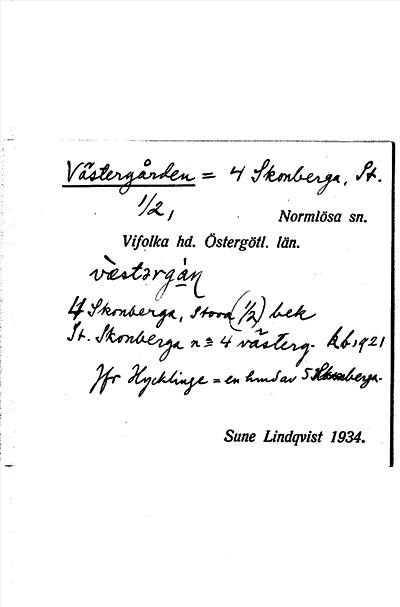 Västergården = 4 Skonberga, St.
1/2,
Normlösa sn.
Vifolka hd. Östergötl. län.
vèstərgàɳ
4 Skonberga, Stora (1/2) bek
St. Skonberga n = 4 västerg- kb 1921
Jfr Hycklinge = en hmd av 5 Skonberga-
Sune Lindqvist 1934.